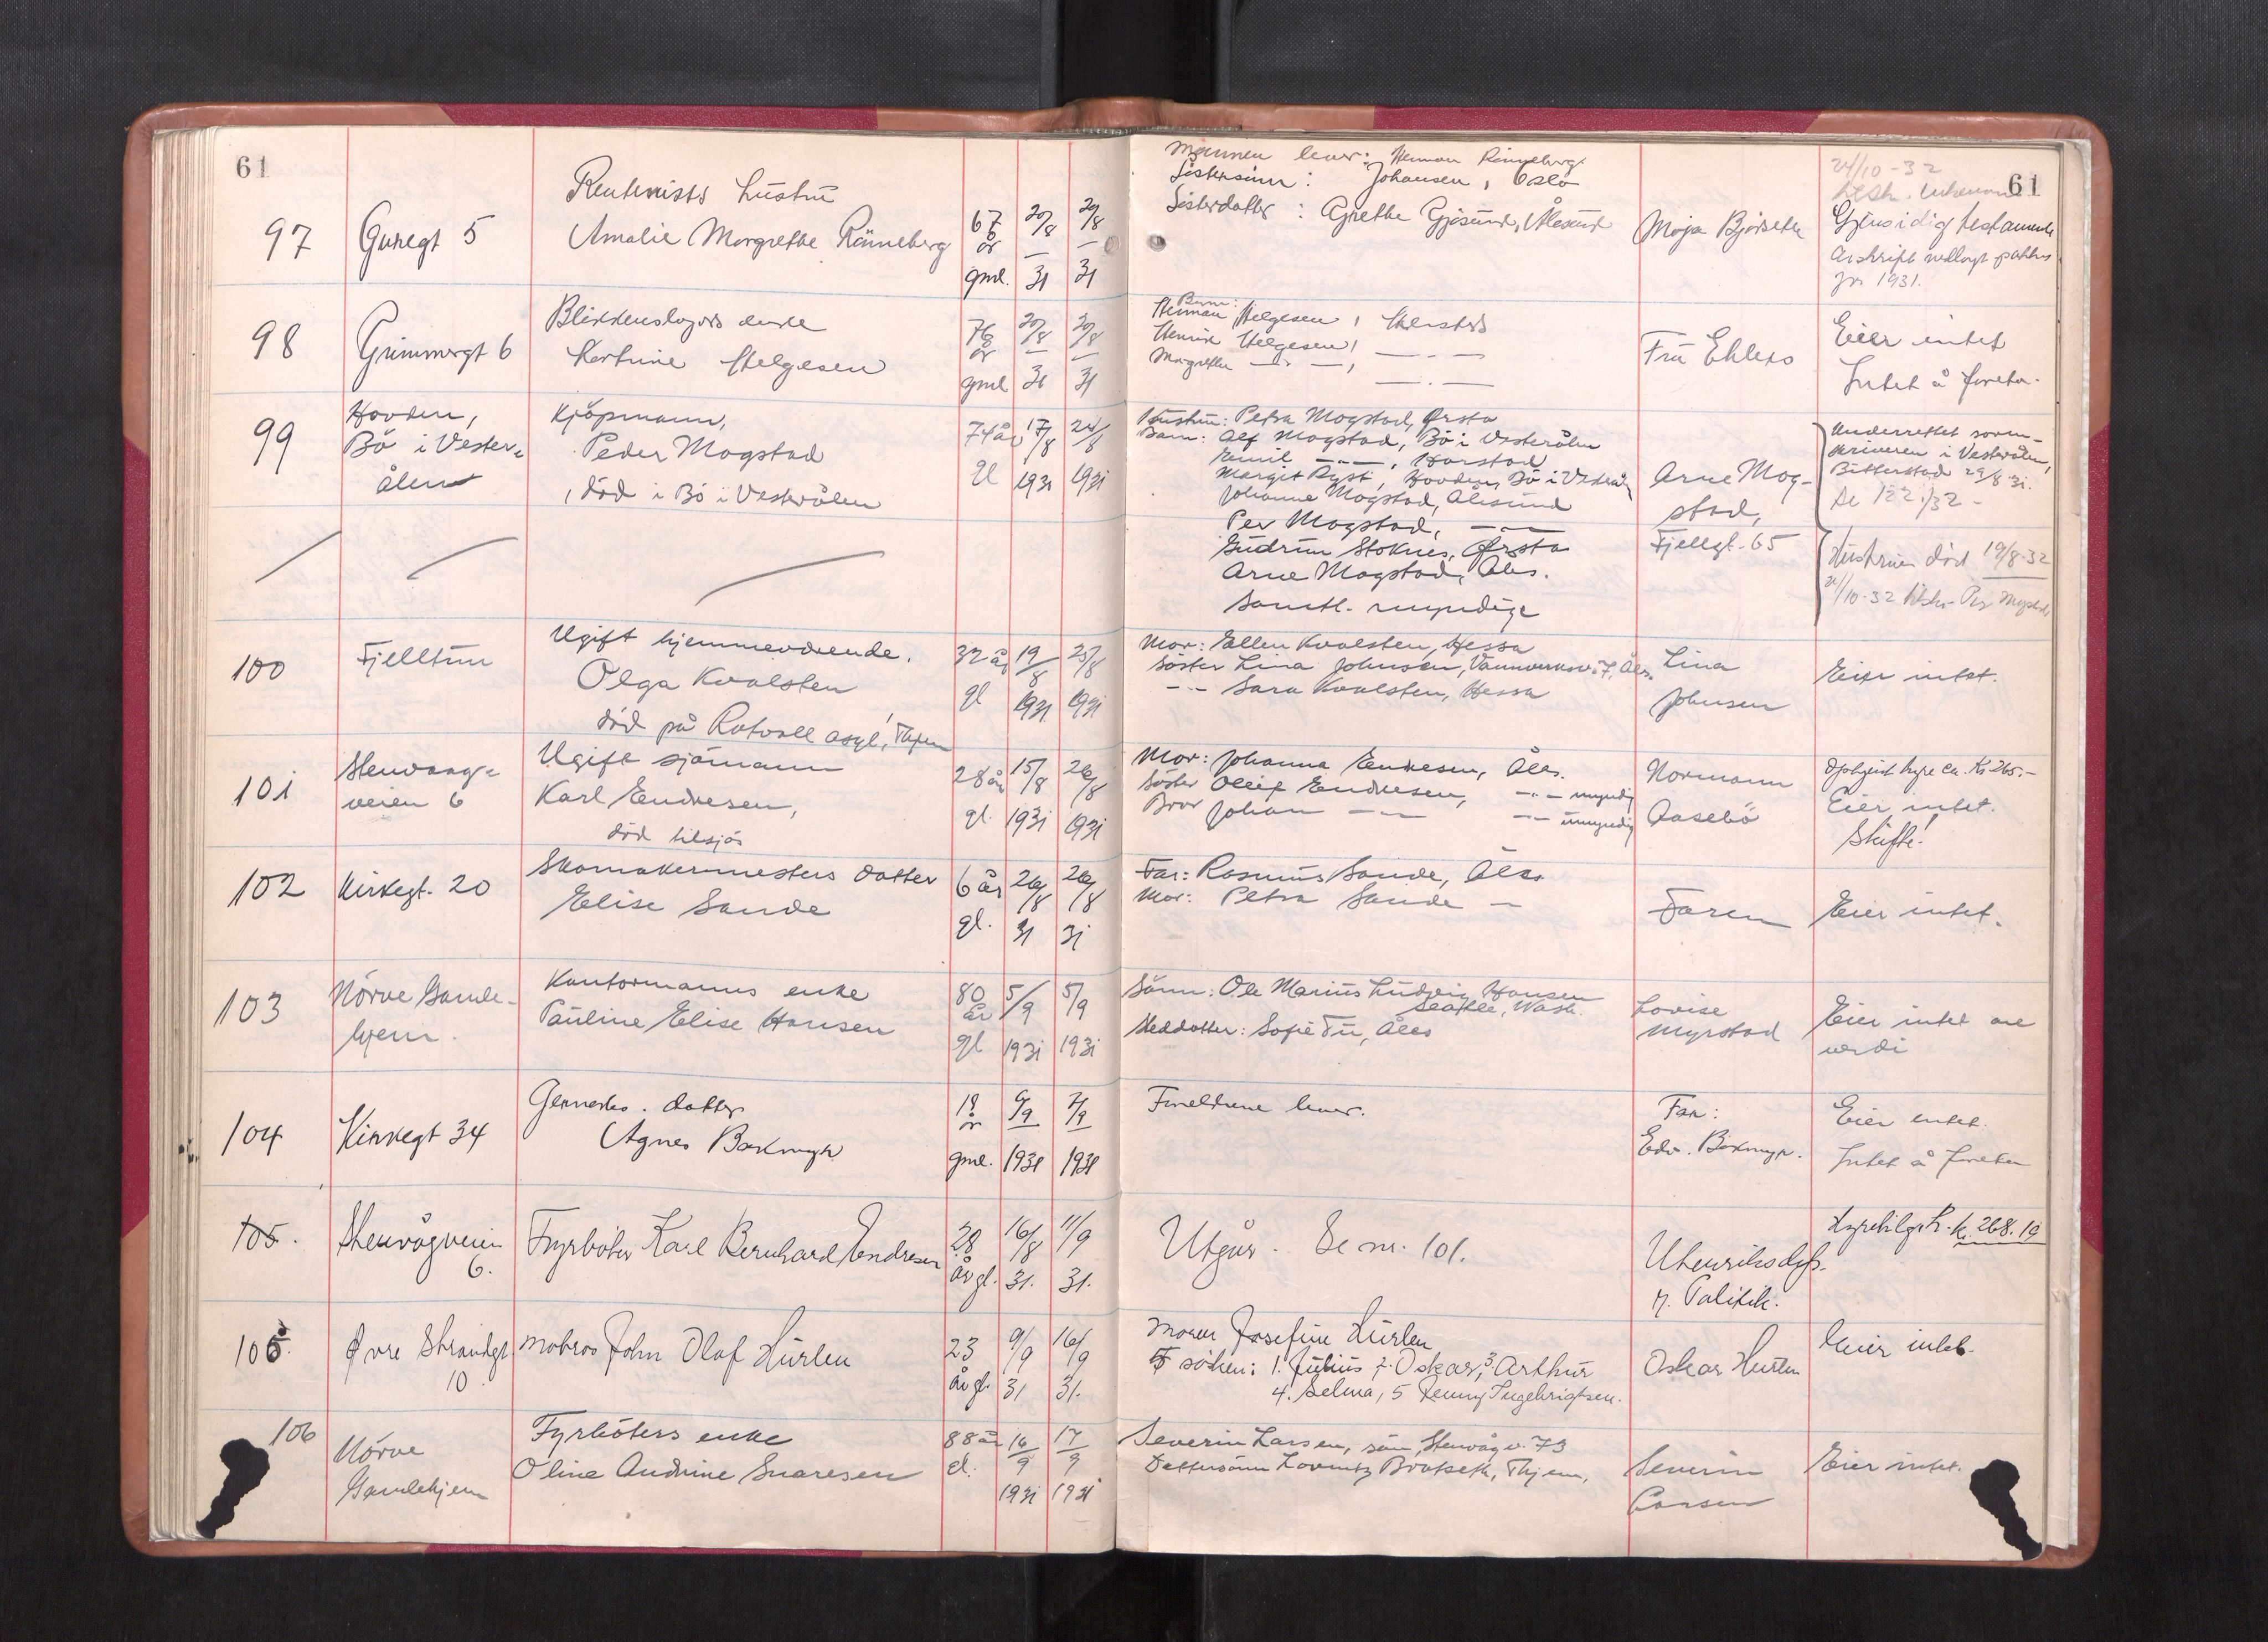 61
61
97
Guregt 5
Rentenists hustru
Amalie Margrethe Rönneberg
67 år gml.
20/8 - 31
20/8 - 31
Mannen lever: Herman Rönneberg.
Søstersønn: Johansen, Oslo
Søsterdatter: Grethe Gjøsund, Ålesund
Maja Bjørseth
24/10-32
Gjensidig testamente
avskrift vedlagt
for 1931.
98
Grimmergt 6
Blikkenslagers enke
Katrine Helgesen
76 år gml
20/8 - 31
20/8 - 31
Barn:
Herman Helgesen,
Henrik Helgesen, — . —
Margrethe — " —, — . —
Fru Ehlers
Eier intet
Intet å foreta.
99
Hovden,
Bö i Vester=
ålen
Kjöpmann,
Peder Mogstad
, död i Bö i Vesterålen
74 år gl
17/8 1931
24/8 1931
Hustru: Petra Mogstad, Ørsta
Barn: Alf Mogstad, Bö i Vesterålen
Emil — " —, Harstad
Margit Ryst, Hovden, Bö i Vesterålen
Johanne Mogstad, Ålesund
Per Mogstad, — " —
Gudrun Stoknes, Ørsta
Arne Mogstad, Åles.
Samtl. myndige
Arne Mog-
stad,
Fjellgt. 65
Underrettet soren-
skriveren i Vesterålen,
29/8 31.
Se 122/32 -
Hustruen död 19/8-32
21/10-32 Per Mogstad
100
Fjelltun
Ugift hjemmeværende.
Olga Kvalsten
död på Rotvoll asyl, Thjem
32 år gl
19/8 1931
25/8 1931
Mor: Ellen Kvalsten, Hessa
Söster Lina Johnsen, Vannverksv. 7, Åles.
- " - Sara Kvalsten, Hessa
Lina
Johnsen
Eier intet.
101
Stenvaag=
veien 6
Ugift sjömann
Karl Endresen,
död tilsjös
28 år gl.
15/8 1931
26/8 1931
Mor: Johanna Endresen, Åles.
Söster Oleif Endresen, — " — myndig
Bror Johan — " — — " — umyndig
Normann
Aasebö
Opptjent hyre ca. Kr 265.-
Eier intet.
Skifte!
102
Kirkegt. 20
Skomakermesters datter
Elise Sande
6 år gl.
26/8 31
26/8 31
Far: Rasmus Sande, Åles.
Mor: Petra Sande —
Faren
Eier intet.
103
Nörve Gamle-
hjem.
Kontormanns enke
Pauline Elise Hansen
80 år gl
5/9 1931
5/9 1931
Sönn: Ole Marius Ludvig Hansen
Seattle, Wash.
Steddatter: Sofie Fu, Åles
Lovise
Myrstad
Eier intet av
verdi
104
Kirkegt 34
datter
Agnes Bakmyr
19 år gml.
6/9 1931
7/9 1931
Foreldrene lever.
Far:
Edv. Bakmyr.
Eier intet.
Intet å foreta
105.
Stenvågveien
6.
Fyrböter Karl Bernhard Endresen
28 år gl.
16/8 31.
11/9 31.
Utgår. Se nr. 101.
Utenriksdep.
Kr. 268.19
105.
Øvre Strandgt
10.
Matros John Olaf Hurlen
23 år gl.
9/9 31
16/9 31.
Moren Josefine Hurlen
5 söken: 1. Julius 2. Oskar, 3. Arthur
4. Selma, 5 Jenny Ingebrigtsen.
Oskar Hurlen
Eier intet.
106
Nörve
Gamlehjem
Fyrböters enke
Oline Andrine Snaresen
88 år gl.
16/9 1931
17/9 1931
Severin Larsen, sön, Stenvåg v. 73
Dattersönn Lorentz Bratseth, Thjem,
Severin
Larsen
Eier intet.